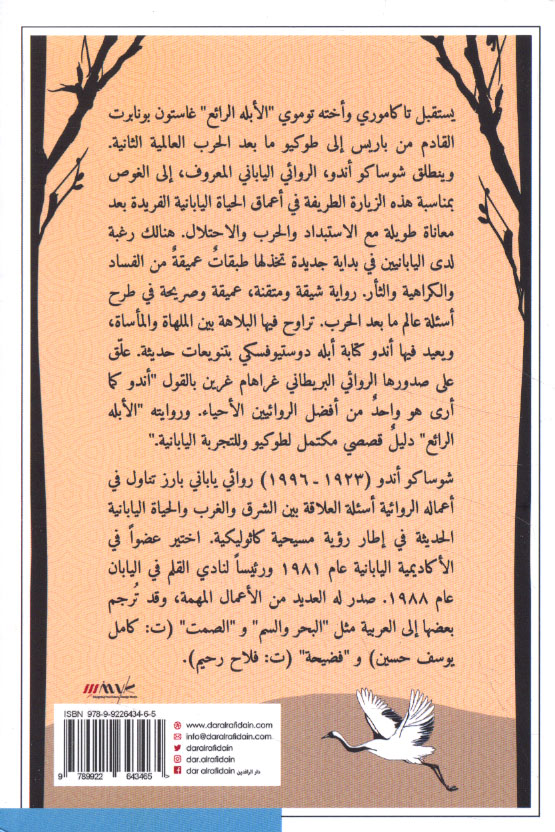 يستقبل تاكاموري وأخته توموي "الأبله الرائع" غاستون بونابرت
القادم من باريس إلى طوكيو ما بعد الحرب العالمية الثانية.
وينطلق شوساكو أندو، الروائي الياباني المعروف، إلى الغوص
بمناسبة هذه الزيارة الطريفة في أعماق الحياة اليابانية الفريدة بعد
معاناة طويلة مع الاستبداد والحرب والاحتلال. هنالك رغبة
لدى اليابانيين في بداية جديدة تخذلها طبقاتٌ عميقةٌ من الفساد
والكراهية والثأر. رواية شيقة ومتقنة، عميقة وصريحة في طرح
أسئلة عالم ما بعد الحرب. تراوح فيها البلاهة بين الملهاة والمأساة،
ويعيد فيها أندو كتابة أبله دوستيوفسكي بتنويعات حديثة. علّق
على صدورها الروائي البريطاني غراهام غرين بالقول "أندو كما
أرى هو واحدٌ من أفضل الروائيين الأحياء. وروايته "الأبله
الرائع" دليلٌ قصصي مكتمل لطوكيو وللتجربة اليابانية."
شوساكو أندو (١٩٢٣ - ١٩٩٦) روائي ياباني بارز تناول في
أعماله الروائية أسئلة العلاقة بين الشرق والغرب والحياة اليابانية
الحديثة في إطار رؤية مسيحية كاثوليكية. اختير عضواً في
الأكاديمية اليابانية عام ١٩٨١ ورئيساً لنادي القلم في اليابان
عام ١٩٨٨. صدر له العديد من الأعمال المهمة، وقد تُرجم
بعضها إلى العربية مثل "البحر والسم" و "الصمت" (ت: كامل
يوسف حسين) و "فضيحة" (ت: فلاح رحيم).
ISBN 978-9-9226434-6-5
9 789922 643465 >
www.daralrafidain.com
info@daralrafidain.com
daralrafidain
dar.alrafidain
dar alrafidain دار الرافدين